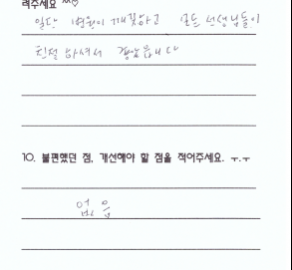 려주세요 ^^♡
일단 병원이 깨끗하고 모든 선생님들이
친절 하셔서
10. 불편했던 점, 개선해야 할 점을 적어주세요. ㅜ.ㅜ
없음